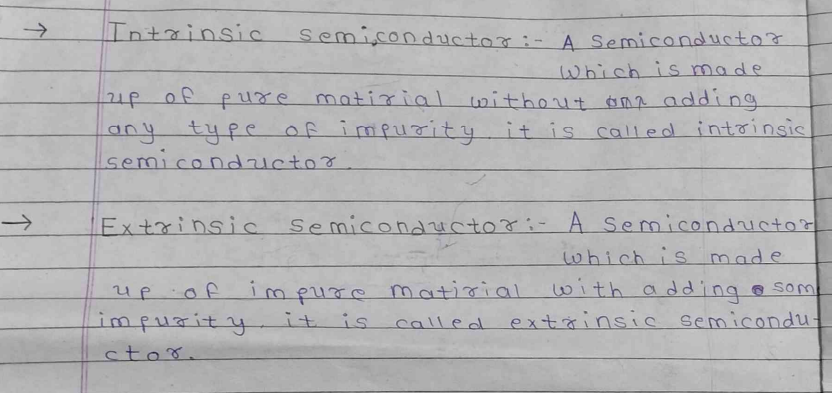 → Intrinsic semiconductor :- A semiconductor
which is made
up of pure matirial without adding
any type of impurity. it is called intrinsic
semiconductor.
→ Extrinsic semiconductor :- A semiconductor
which is made
up of impure matirial with adding som
impurity. it is called extrinsic semicondu-
ctor.